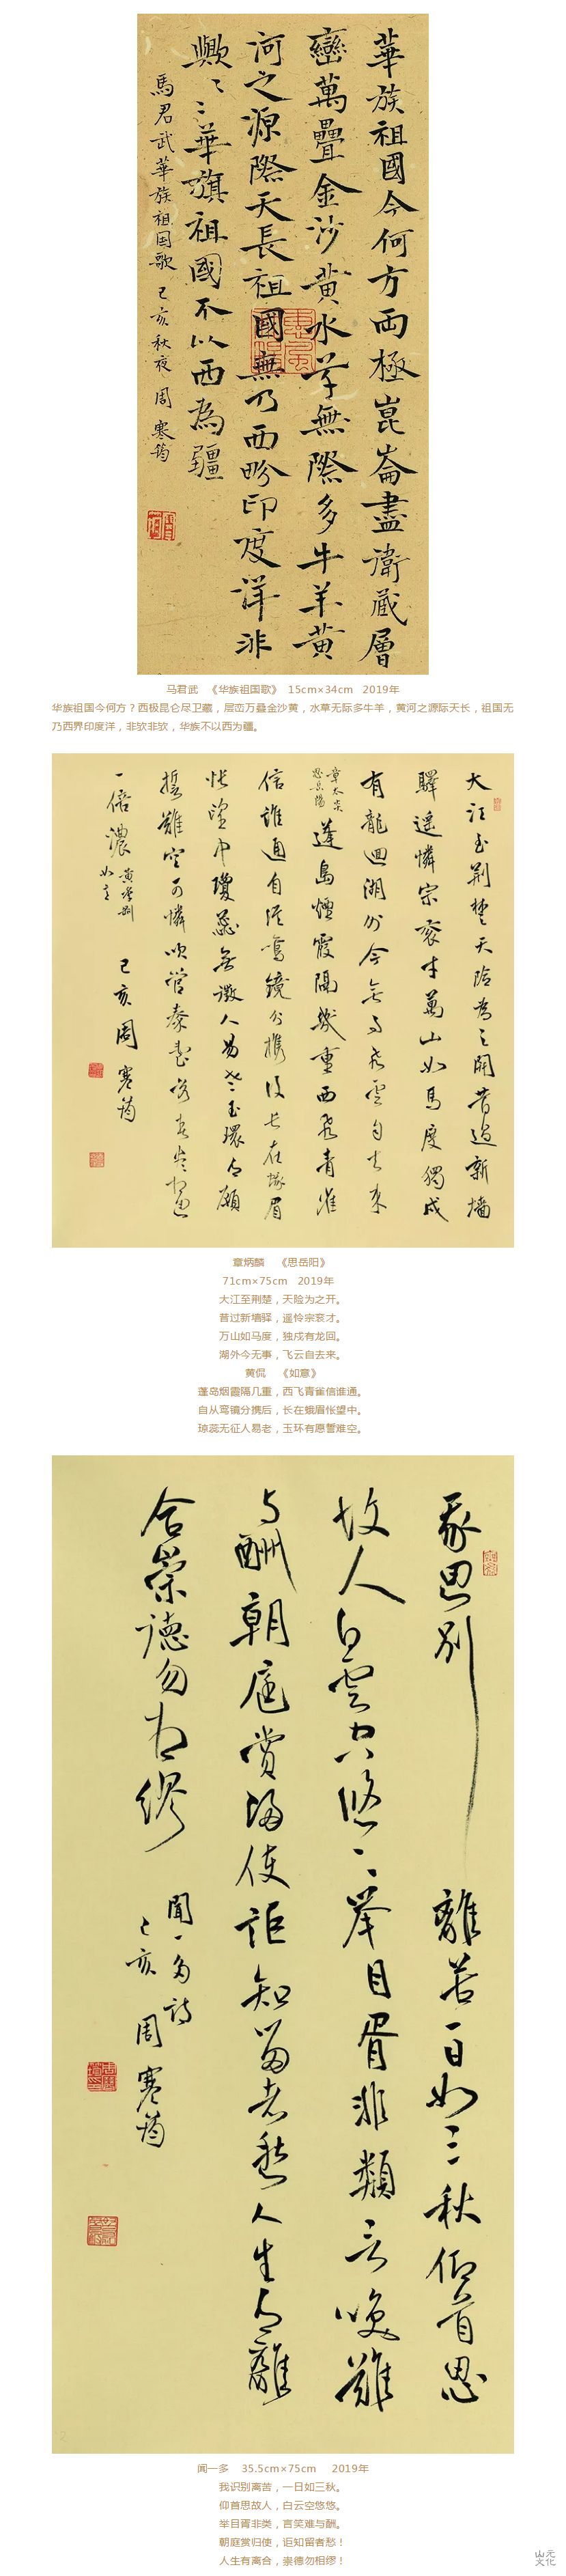 華族祖國今何方西極崑崙盡衛藏層
巒萬疊金沙黃水草無際多牛羊黃
河之源際天長祖國無乃西畍印度洋非
歟〻〻華旗祖國不以西為疆
馬君武華族祖国歌 己亥秋夜 周寒筠
马君武 《华族祖国歌》 15cm×34cm 2019年
华族祖国今何方？西极昆仑尽卫藏，层峦万叠金沙黄，水草无际多牛羊，黄河之源际天长，祖国无
乃西界印度洋，非欤非欤，华族不以西为疆。
大江至荆楚天險為之開昔過新墻
驛遥憐宗衮才萬山如馬度獨戍
有龍迴湖外今無事飛雲自去來
章太炎
思岳陽
蓬島煙霞隔幾重西飛青雀
信誰通自從鸞鏡分携後長在蛾眉
悵望中瓊蕊無徵人易老玉環有願
誓難空可憐吹管秦臺
一倍濃
黄季剛
如意
己亥周寒筠
章炳麟 《思岳阳》
71cm×75cm 2019年
大江至荆楚，天险为之开。
昔过新墙驿，遥怜宗衮才。
万山如马度，独戍有龙回。
湖外今无事，飞云自去来。
黄侃 《如意》
蓬岛烟霞隔几重，西飞青雀信谁通。
自从鸾镜分携后，长在蛾眉怅望中。
琼蕊无征人易老，玉环有愿誓难空。
我思别離苦一日如三秋仰首思
故人白雲空悠〻舉目胥非類言笑難
与酬朝庭賞歸使詎知留者愁人生有離
合崇德勿相繆
聞一多詩
己亥 周寒筠
闻一多 35.5cm×75cm 2019年
我识别离苦，一日如三秋。
仰首思故人，白云空悠悠。
举目胥非类，言笑难与酬。
朝庭赏归使，讵知留者愁！
人生有离合，崇德勿相缪！
山元
文化